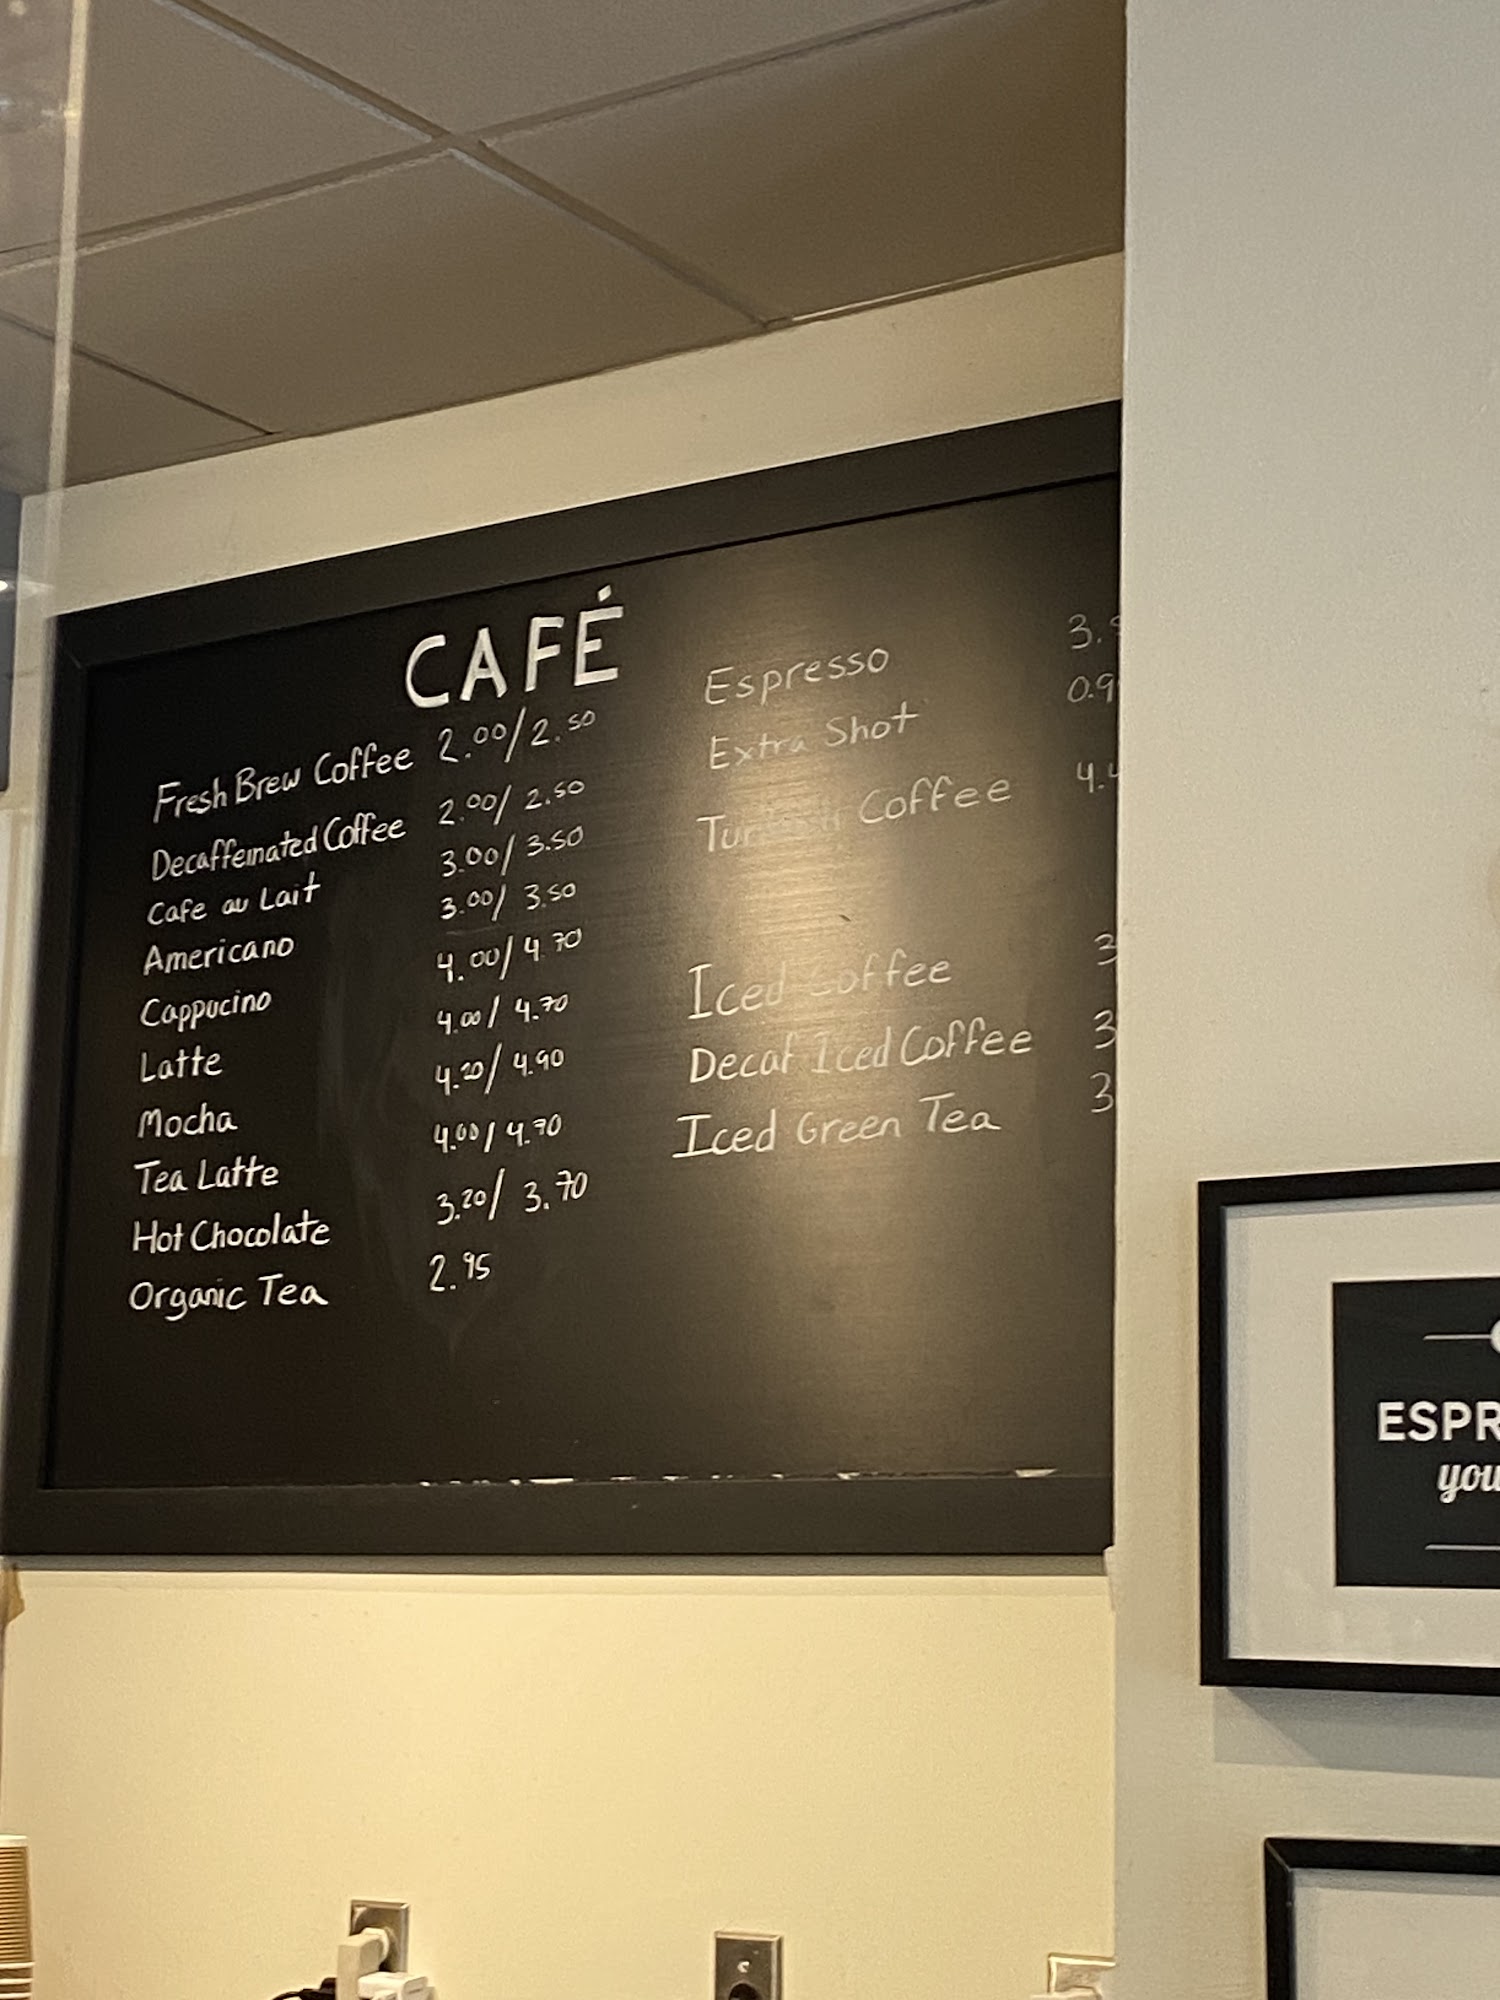 CAFÉ
Fresh Brew Coffee 2.00/2.50
Decaffeinated Coffee 2.00/2.50
Cafe au Lait 3.00/3.50
Americano 3.00/3.50
Cappucino 4.00/4.70
Latte 4.00/4.70
Mocha 4.20/4.90
Tea Latte 4.00/4.70
Hot Chocolate 3.20/3.70
Organic Tea 2.95
Espresso 3.
Extra Shot 0.9
Coffee 4.4
Iced Coffee 3
Decaf Iced Coffee 3
Iced Green Tea 3
ESPR
you